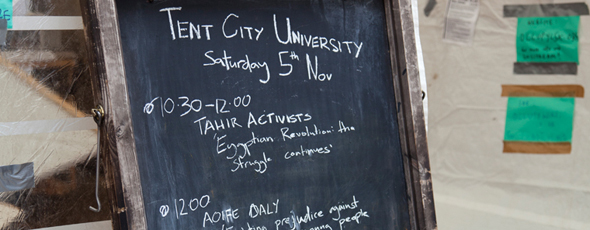 TENT CITY UNIVERSITY
Saturday 5th Nov
10:30-12:00
TAHIR ACTIVISTS
'Egyptian Revolution: the
struggle continues'
1200
AOIFE DALY
prejudice against
people